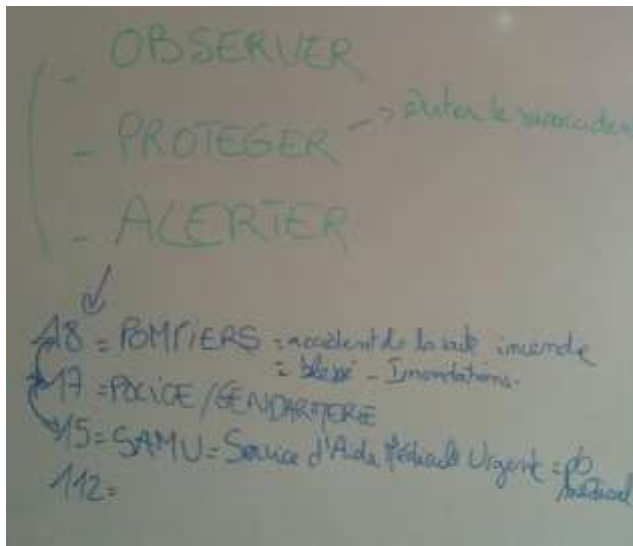 - OBSERVER
- PROTEGER -> éviter le suraccident
- ALERTER
18 = POMPIERS = accident de la route incendie
= blessé - Inondations.
17 = POLICE/GENDARMERIE
15 = SAMU = Service d'Aide Médicale Urgente = pb
médical
112 =